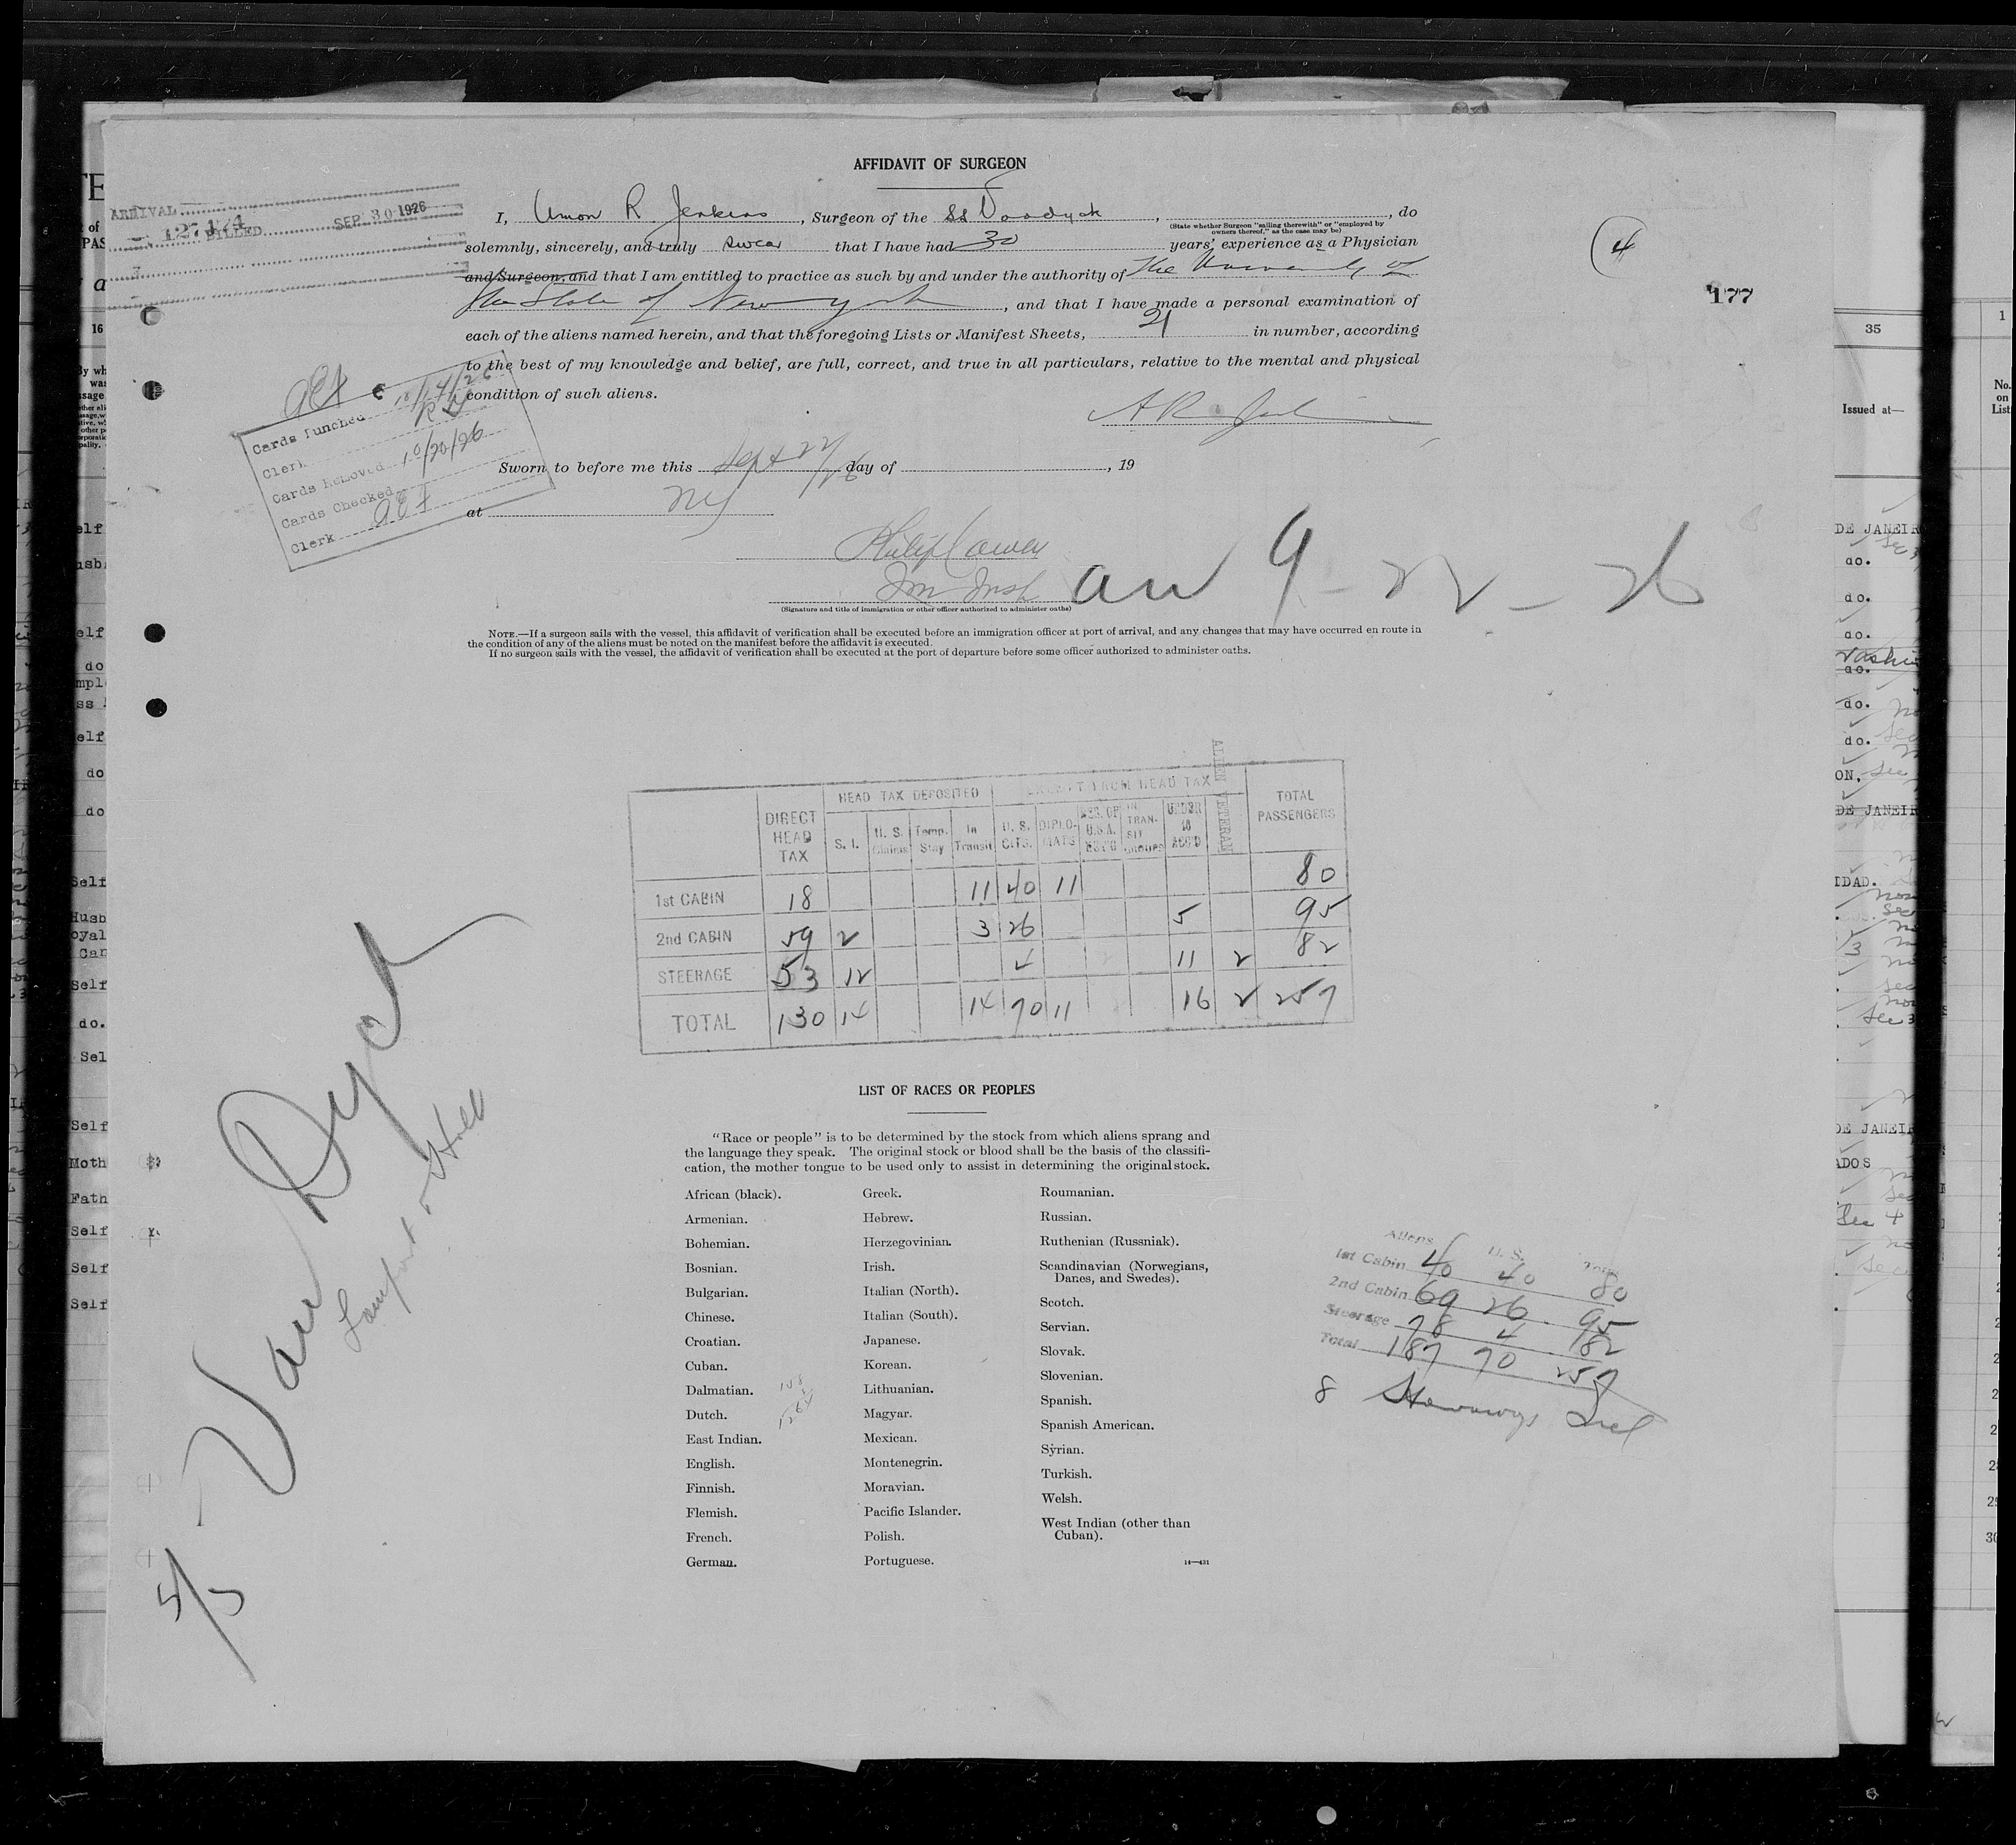 AFFIDAVIT OF SURGEON
ARRIVAL
127174
BILLED
SEP 30 1926
I, R. Jenkins, Surgeon of the SS Vandyck, , do
(State whether Surgeon "sailing therewith" or "employed by owners thereof," as the case may be)
solemnly, sincerely, and truly swear that I have had 30 years' experience as a Physician
and Surgeon, and that I am entitled to practice as such by and under the authority of The University of
the State of New York, and that I have made a personal examination of
each of the aliens named herein, and that the foregoing Lists or Manifest Sheets, 21 in number, according
to the best of my knowledge and belief, are full, correct, and true in all particulars, relative to the mental and physical
condition of such aliens.
4
177
Cards Punched 10/14/26
Clerk
Cards Removed 10/20/26
Cards Checked
Clerk
Sworn to before me this Sept 22/26 day of , 19
at NY
Philip Cowen
Imm Insp
arr 9-22-26
(Signature and title of immigration or other officer authorized to administer oaths)
NOTE.—If a surgeon sails with the vessel, this affidavit of verification shall be executed before an immigration officer at port of arrival, and any changes that may have occurred en route in
the condition of any of the aliens must be noted on the manifest before the affidavit is executed.
If no surgeon sails with the vessel, the affidavit of verification shall be executed at the port of departure before some officer authorized to administer oaths.
DIRECT HEAD TAX
HEAD TAX DEPOSITED
EXEMPT FROM HEAD TAX
TOTAL PASSENGERS
S. I. U. S. Claims Temp. Stay In Transit U. S. CITS. DIPLO-MATS RES. OF U.S.A. IN TRAN-SIT GROUPS UNDER 16 ACC'D ALIEN VETERAN
1st CABIN 18 11 40 11 80
2nd CABIN 59 2 3 26 5 95
STEERAGE 53 12 4 11 2 82
TOTAL 130 14 14 70 11 16 2 257
Van Dyck
Lamport & Holt
5/5
LIST OF RACES OR PEOPLES
"Race or people" is to be determined by the stock from which aliens sprang and
the language they speak. The original stock or blood shall be the basis of the classifi-
cation, the mother tongue to be used only to assist in determining the original stock.
African (black).
Armenian.
Bohemian.
Bosnian.
Bulgarian.
Chinese.
Croatian.
Cuban.
Dalmatian.
Dutch.
East Indian.
English.
Finnish.
Flemish.
French.
German.
Greek.
Hebrew.
Herzegovinian.
Irish.
Italian (North).
Italian (South).
Japanese.
Korean.
Lithuanian.
Magyar.
Mexican.
Montenegrin.
Moravian.
Pacific Islander.
Polish.
Portuguese.
Roumanian.
Russian.
Ruthenian (Russniak).
Scandinavian (Norwegians,
Danes, and Swedes).
Scotch.
Servian.
Slovak.
Slovenian.
Spanish.
Spanish American.
Syrian.
Turkish.
Welsh.
West Indian (other than
Cuban).
14—431
Aliens U. S. Total
1st Cabin 40 40 80
2nd Cabin 69 26 95
Steerage 78 4 82
Total 187 70 257
8 Stowaways Incl
35
Issued at—
DE JANEIR
do.
do.
do.
do.
do.
do.
DE JANEIR
IDAD.
DE JANEIR
ADOS
1
No. on List
16
Self
Husb
Self
do.
Self
Moth
Fath
Self
Self
Self